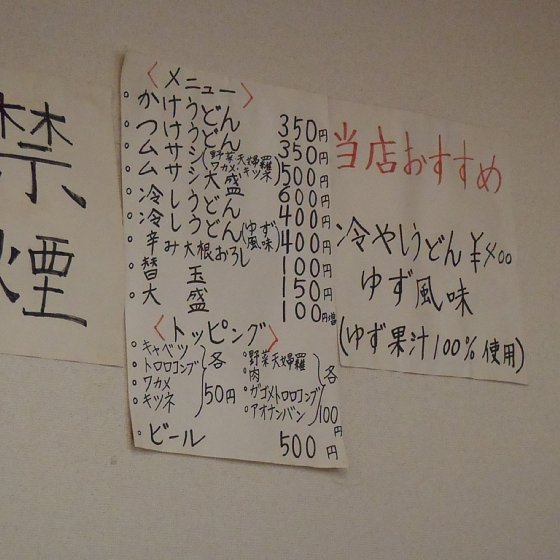 禁
煙
〈メニュー〉
・かけうどん 350円
・つけうどん 350円
・ムサシ(野菜天婦羅 ワカメ キツネ) 500円
・ムサシ大盛 600円
・冷しうどん 400円
・冷しうどん(ゆず風味) 400円
・辛み大根おろし 100円
・替玉 150円
・大盛 100円増
〈トッピング〉
・キャベツ
・トロロコンブ
・ワカメ
・キツネ
各50円
・野菜天婦羅
・肉
・ガゴメトロロコンブ
・アオナンバン
各100円
・ビール 500円
当店おすすめ
冷やしうどん ¥400
ゆず風味
(ゆず果汁100%使用)